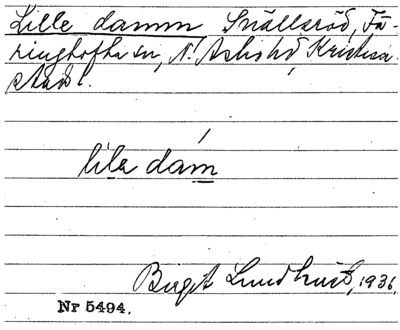 Lille damm Snällsröd, Fä-
ringtofta sn, N. Åsbo hd, Kristian-
stads l.
lile dam
Birgit Lundhus, 1936.
Nr 5494.